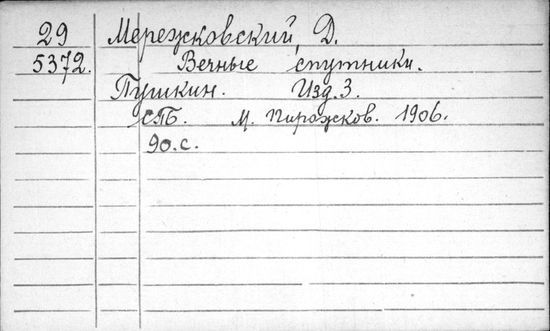 29 Мережковский, Д.
5372. Вечные спутники.
Пушкин. Изд. 3.
СПБ. М. Пирожков. 1906.
90.с.